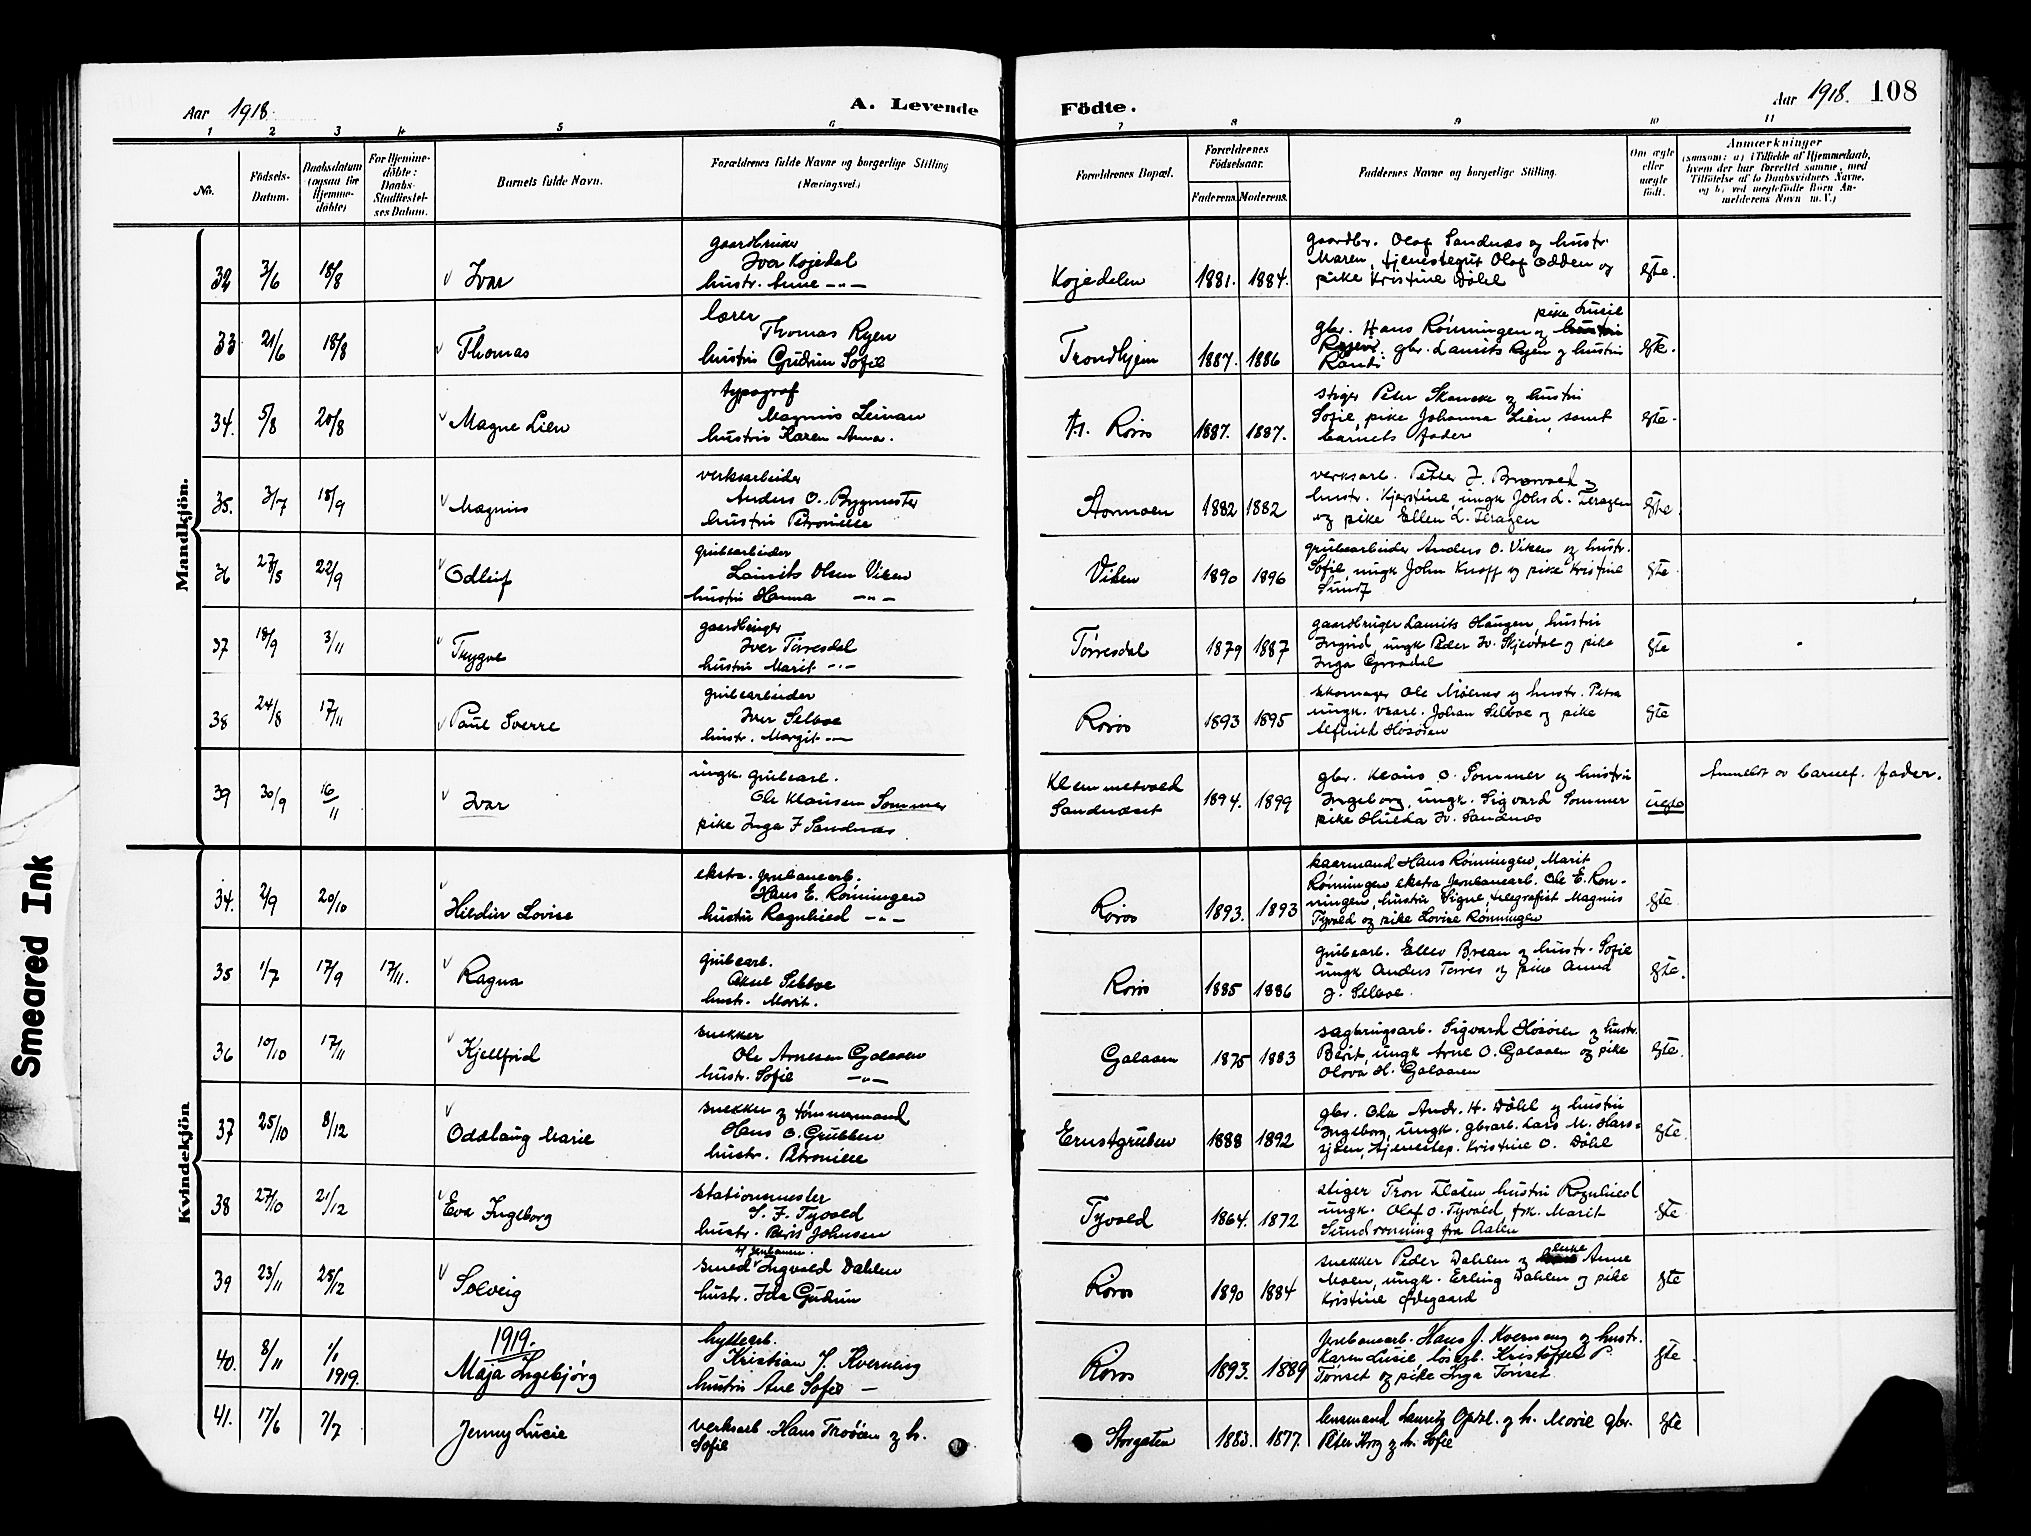 Aar 1918.
A. Levende Födte.
Aar 1918. 108
1 2 3 4 5 6 7 8 9 10 11
No.
Födsels-Datum.
Daabsdatum (ogsaa for Hjemme-döbte)
For Hjemme-döbte: Daabs-Stadfæstel-ses Datum.
Barnets fulde Navn.
Forældrenes fulde Navne og borgerlige Stilling (Næringsvei.)
Forældrenes Bopæl.
Forældrenes Födselsaar.
Faderens. Moderens.
Faddernes Navne og borgerlige Stilling.
Om ægte eller uægte født.
Anmærkninger (saasom: a) i Tilfælde af Hjemmedaab, hvem der har forrettet samme, med Tilföielse af to Daabsvidners Navne, og b) ved uægtefödte Börn An-melderens Navn m. V.)
Mandkjön.
32 3/6 18/8 Ivar
gaardbruker
Iver Kojedal
hustr. Anne -"-
Kojedalen 1881. 1884.
gaardbr. Olaf Sandnæs og hustr.
Maren, tjenestegut Olaf Odden og
pike Kristine Döhl
ægte.
33 21/6 18/8 Thomas
lærer
Thomas Ryen
hustru Gudrun Sofie
Trondhjem 1887. 1886
pike Lusie
gbr. Hans Rønningen og
gbr. Laurits Ryen og hustru
Randi
ægte.
34. 5/8 20/8 Magne Lien
typograf
Magnus Leinan
hustru Karen Anna.
Røros 1887. 1887.
stiger Peter Skancke og hustru
Sofie, pike Johanna Lien, samt
barnets fader
ægte.
35. 3/7 18/9 Magnus
verksarbeider
Anders O. Bygmester
hustru Petronelle
Stormoen 1882 1882
verksarb. Petter J. Brovold og
hustr. Kjerstine, ungk. Johs L. Feragen
og pike Ellen L. Feragen
ægte.
36 27/5 22/9 Odleif
grubearbeider
Laurits Olsen Viken
hustru Hanna -"-
Viken 1890 1896
grubearbeider Anders O. Viken og hustr.
Sofie, ungk John Knoff og pike Kristine
Sund
ægte
37 18/9 3/11 Trygve
gaardbruger
Iver Tørresdal
hustru Marit -"-
Tørresdal 1879 1887
gaardbruger Laurits Haugen, hustru
Ingrid, ungk Peder Iv. Skjevdal og pike
Inga Grundal
ægte
38 24/8 17/11 Paul Sverre
grubearbeider
Iver Selboe
hustr. Margit -"-
Røros 1893 1895
skomager Ole Møllnes og hustr. Petra
ungk. Johan Selboe og pike
Alfhild Hosøien
ægte
39 30/9 16/11 Ivar
ungk. grubearb.
Ole Klausen Sommer
pike Inga J Sandnæs
Klemmetvold
Sandnæset 1894. 1899
gbr. Klaus O. Sommer og hustru
Ingeborg, ungk. Sigvard Sommer
pike Hulda Iv. Sandnæs
uegte
Anmeldt av barnets fader.
Kvindekjön
34. 2/9 20/10 Hildur Lovise
ekstra. jernbanearb.
Hans E. Rønningen
hustru Ragnhild -"-
Røros 1893. 1893
kaarmand Hans Rønningen, Marit
Rønningen ekstra jernbanearb. Ole E. Røn-
ningen, hustru Signe, telegrafist Magnus
Tyvold og pike Lovise Rønningen
ægte
35 1/7 17/9 17/11. Ragna
grubearb.
Aksel Selboe
hustr. Marit.
Røros 1885 1886
grubearb. Ellev Brean og hustr. Sofie
ungk Anders Torres og pike Anna
J. Selboe.
ægte.
36 10/10 17/11 Kjellfrid
snekker
Ole Arnesen Galaaen
hustr. Sofie -"-
Galaaen 1875 1883
sagbruksarb. Sigvard Hosøien og hustr.
Berit, ungk Arne O. Galaaen og pike
Olava H. Galaaen
ægte.
37 25/10 8/12 Oddlaug Marie
snekker og tømmermand
Hans O. Grubben
hustr. Petronille
Ernstgruben 1888 1892
gbr. Ole Andr. H. Döhl og hustru
Ingeborg, ungk. gbrarb. Lars M. Hars-
sjøen, tjenestep. Kristine O. Döhl
ægte.
38 27/10 21/12 Eva Ingeborg
stationsmester
S. J. Tyvold
hustr. Beret Johnsen
Tyvold 1864. 1872
stiger Tron Flaten, hustru Ragnhild
ungk. Olaf O. Tyvold, frk. Marit
Sundrønning fra Aalen
ægte
39 23/11 25/12 Solveig
v/ jernbanen.
smed Ingvald Dahlen
hustr. Ida Gudrun
Røros 1890 1884
snekker Peder Dahlen og enke Anne
Moen, ungk. Erling Dahlen og pike
Kristine Ødegaard
ægte
40. 8/11 1/1 1919. 1919.
Maja Ingebjørg
hyttearb.
Kristian J. Kverneng
hustru Ane Sofie -
Røros 1893. 1889
jernbanearb. Hans J. Kverneng og hustr.
Karen Lusie, løsarb. Kristoffer P.
Tønset og pike Inga Tønset.
ægte
41. 17/6 7/7 Jenny Lucie
verksarb. Hans Trøøien og h.
Sofie
Storgaten 1883. 1877.
lensmand Lauritz Opdal. og h. Marie gbr.
Peter Krog og h. Sofie
ægte
Smeared Ink